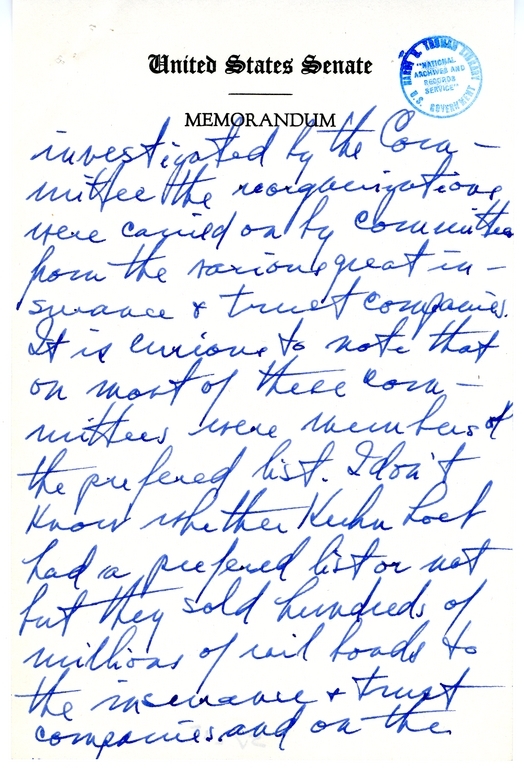 United States Senate
MEMORANDUM
HARRY S. TRUMAN LIBRARY
"NATIONAL
ARCHIVES AND
RECORDS
SERVICE"
U.S. GOVERNMENT
investigated by the Com-
mittee the reorganizations
were carried on by committees
from the various great in-
surance & trust companies.
It is curious to note that
on most of these com-
mittees were members of
the prefered list. I don't
know whether Kuhn Loeb
had a prefered list or not
but they sold hundreds of
millions of rail bonds to
the insurance & trust
companies and on the